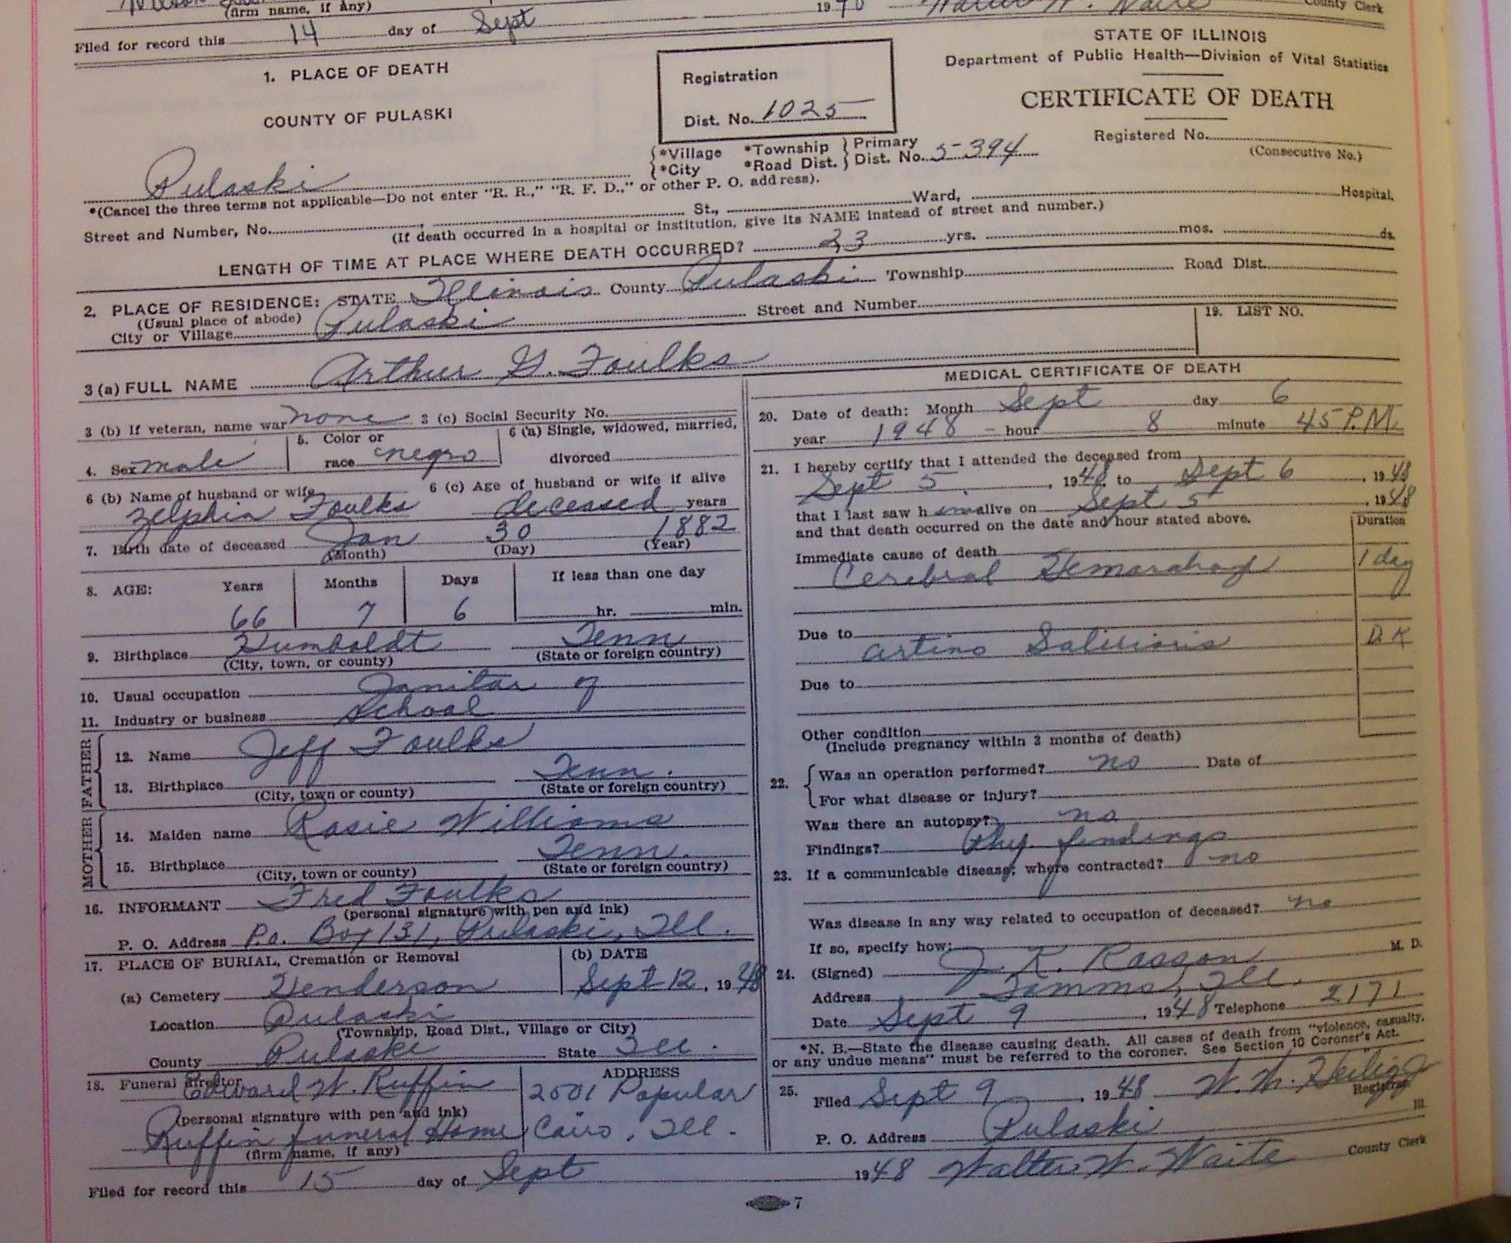 (firm name, if any) 19 County Clerk
Filed for record this 14 day of Sept
1. PLACE OF DEATH
COUNTY OF PULASKI
Registration
Dist. No. 1025
STATE OF ILLINOIS
Department of Public Health—Division of Vital Statistics
CERTIFICATE OF DEATH
Registered No.
(Consecutive No.)
Pulaski {*Village *Township } Primary
{*City *Road Dist. } Dist. No. 5-394
*(Cancel the three terms not applicable—Do not enter "R. R.," "R. F. D.," or other P. O. address).
Street and Number, No. St., Ward, Hospital.
(If death occurred in a hospital or institution, give its NAME instead of street and number.)
LENGTH OF TIME AT PLACE WHERE DEATH OCCURRED? 23 yrs. mos. ds.
2. PLACE OF RESIDENCE: STATE Illinois County Pulaski Township Road Dist.
(Usual place of abode)
City or Village Pulaski Street and Number
19. LIST NO.
3 (a) FULL NAME Arthur G. Foulks
3 (b) If veteran, name war none 3 (c) Social Security No.
4. Sex male 5. Color or race negro 6 (a) Single, widowed, married, divorced
6 (b) Name of husband or wife Zelphia Foulks 6 (c) Age of husband or wife if alive deceased years
7. Birth date of deceased Jan 30 1882
(Month) (Day) (Year)
8. AGE: Years Months Days If less than one day
66 7 6 hr. min.
9. Birthplace Humboldt Tenn
(City, town, or county) (State or foreign country)
10. Usual occupation Janitor of
11. Industry or business School
FATHER
12. Name Jeff Foulks
13. Birthplace Tenn.
(City, town or county) (State or foreign country)
MOTHER
14. Maiden name Rosie Williams
15. Birthplace Tenn.
(City, town or county) (State or foreign country)
16. INFORMANT Fred Foulks
(personal signature with pen and ink)
P. O. Address P.o. Box 131, Pulaski, Ill.
17. PLACE OF BURIAL, Cremation or Removal (b) DATE
(a) Cemetery Henderson Sept 12, 1948
Location Pulaski
(Township, Road Dist., Village or City)
County Pulaski State Ill.
18. Funeral director Edward W. Ruffin ADDRESS
(personal signature with pen and ink) 2501 Popular
Ruffin funeral Home Cairo, Ill.
(firm name, if any)
MEDICAL CERTIFICATE OF DEATH
20. Date of death: Month Sept day 6
year 1948 - hour 8 minute 45 P.M.
21. I hereby certify that I attended the deceased from
Sept 5, 1948 to Sept 6, 1948
that I last saw h im alive on Sept 5 1948
and that death occurred on the date and hour stated above.
Duration
Immediate cause of death
Cerebral Hemorahag 1 day
Due to
artino Saliriosis D.K
Due to
Other condition
(Include pregnancy within 3 months of death)
22. {Was an operation performed? no Date of
For what disease or injury?
Was there an autopsy? no
Findings? Phy findings
23. If a communicable disease; where contracted? no
Was disease in any way related to occupation of deceased? no
If so, specify how:
24. (Signed) J. K. Rosson M. D.
Address Tamms, Ill.
Date Sept 9, 1948 Telephone 2171
*N. B.—State the disease causing death. All cases of death from "violence, casualty,
or any undue means" must be referred to the coroner. See Section 10 Coroner's Act.
25. Filed Sept 9, 1948 W. W. Heilig Registrar
P. O. Address Pulaski Ill.
Filed for record this 15 day of Sept 1948 Walter W. Waite County Clerk
7